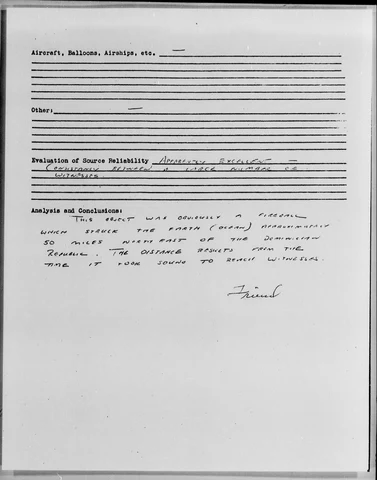 Aircraft, Balloons, Airships, etc. —
Other: —
Evaluation of Source Reliability APPARENTLY EXCELLENT —
CONSISTANCY BETWEEN A LARGE NUMBER OF
WITNESSES
Analysis and Conclusions:
THIS OBJECT WAS OBVIOUSLY A FIREBALL
WHICH STRUCK THE EARTH (OCEAN) APPROXIMATELY
50 MILES NORTHEAST OF THE DOMINICAN
REPUBLIC. THE DISTANCE RESULTS FROM THE
TIME IT TOOK SOUND TO REACH WITNESSES.
Friend